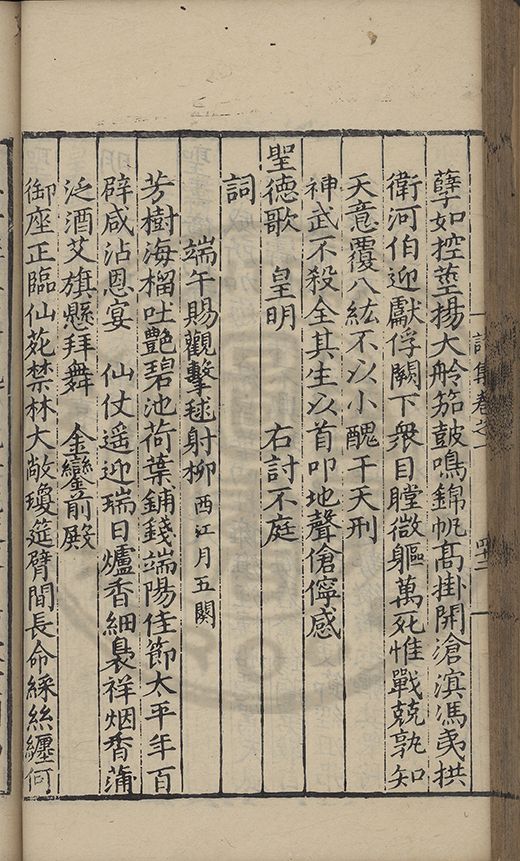 詩集卷之一 四十二
孽如控蛬揚大舲笳鼓鳴錦帆髙掛開滄溟馮夷拱
衛河伯迎獻俘闕下衆目瞠微軀萬死惟戰兢孰知
天意覆八紘不以小醜干天刑
神武不殺全其生以首叩地聲傖儜感
聖德歌 皇明 右討不庭
詞
端午賜觀擊毬射柳 西江月五闋
芳樹海榴吐艷碧池荷葉鋪錢端陽佳節太平年百
辟咸沾恩宴 仙仗遥迎瑞日爐香細裊祥烟香蒲
泛酒艾旗懸拜舞 金鑾前殿
御座正臨仙苑禁林大敞瓊筵臂間長命綵絲纒何